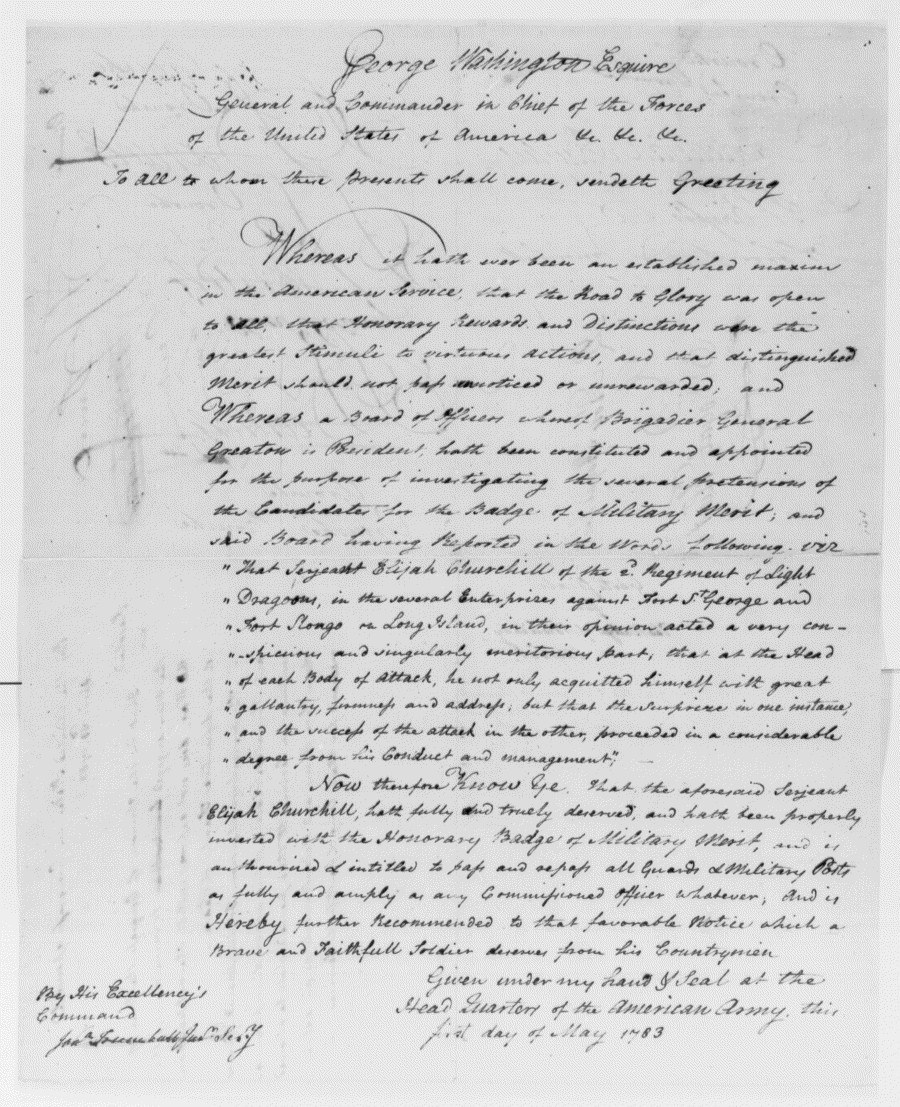 George Washington Esquire
General and Commander in Chief of the Forces
of the United States of America &c. &c. &c.
To all to whom these Presents shall come, sendeth Greeting
Whereas it hath ever been an established maxim
in the American Service, that the Road to Glory was open
to all, that Honorary Rewards and Distinctions were the
greatest Stimuli to virtuous actions, and that distinguished
Merit should not pass unnoticed or unrewarded; and
Whereas a Board of Officers whereof Brigadier General
Greaton is President, hath been constituted and appointed
for the purpose of investigating the several pretensions of
the Candidates for the Badge of Military Merit; and
said Board having Reported in the Words following. viz
" That Serjeant Elijah Churchill of the 2d. Regiment of Light
" Dragoons, in the several Enterprizes against Fort St. George and
" Fort Slongo on Long Island, in their opinion acted a very con-
" spicious and singularly meritorious part; that at the Head
" of each Body of Attack, he not only acquitted himself with great
" gallantry, firmness and address; but that the surprize in one instance,
" and the success of the attack in the other, proceeded in a considerable
" degree from his Conduct and management";
Now therefore Know Ye. That the aforesaid Serjeant
Elijah Churchill, hath fully and truely deserved, and hath been properly
invested with the Honorary Badge of Military Merit, and is
authourized & intitled to pass and repass all Guards & Military Posts
as fully and amply as any Commissioned Officer whatever; And is
Hereby further Recommended to that favorable Notice which a
Brave and Faithfull Soldier deserves from his Countrymen
Given under my hand & Seal at the
Head Quarters of the American Army. this
first day of May 1783
By His Excellency's
Command
Jona. Trumbull Junr. Secy